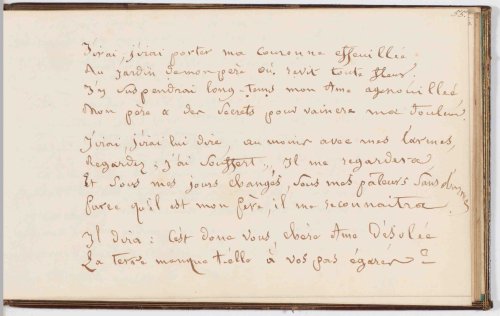 55.
J'irai, j'irai porter ma couronne effeuillée
Au jardin de mon père où revit toute fleur.
J'y suspendrai long-tems mon Ame agenouillée
Mon père a des Secrets pour vaincre ma douleur.
J'irai, j'irai lui dire, au moins avec mes larmes,
Regardez ; j'ai Souffert,, Il me regardera
Et Sous mes jours changés, Sous mes pâleurs Sans charmes
Parce qu'il est mon Père, il me reconnaîtra.
Il dira : C'est donc vous, chère Ame Désolée
La terre manque t-elle à vos pas égarés ?